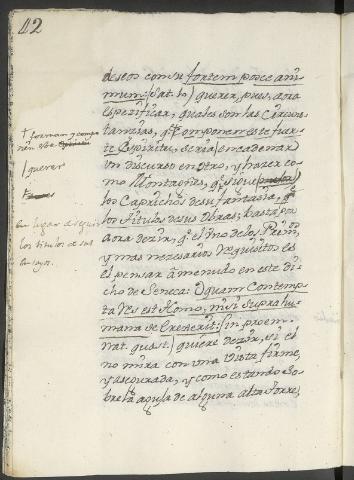 42
deseos con su fortem posce ani
mum: (Sat. 10) querer, pues, aora
espezificar, quales son las Circuns
tanzias, q.e componen este fuer
te Espiritu, seria encadenar
un discurso en otro, y hazer co
mo Montagnes, q.e sigue
los Caprichos de su fantasia, q.e
los Titulos de sus Obras; basta por
aora dezir, q.e el uno de los Prim.os
y mas nezesarios requisitos es
el pensar â menudo en este di
cho de Seneca: O quam contemp
ta res est Homo, nisi supra hu
mana se erexerit: (in proem.
nat. quæst.) quiere dezir, si el
no mira con una vista firme,
y asegurada, y como estando so
bre la aguja de alguna alta Torre,
+ forman y compo
nen este
/ querer
en lugar de seguir
los titulos de sus